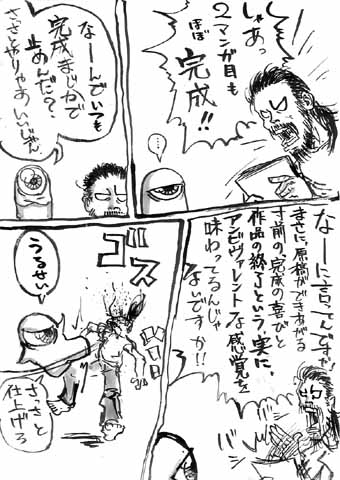 しゃあっ
2マンガ目も
ほぼ
完成!!
…
なーんでいても
完成まぢかで
止めんだ?
さっさと
やりゃあいいじゃん
なーに言ってんですか!
まさに、原稿ができあがる
寸前の、完成の喜びと
作品の終了という、実に、
アンビヴァレントな感覚を
味わってるんじゃ
ないですか!!
バ
バン
うるせい!
ゴス
さっさと
仕上げろ